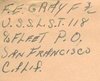 F.E. GRAY F 2/c
U.S.S. L.S.T. 118
% FLEET P.O.
SAN FRANCISCO
CALIF.